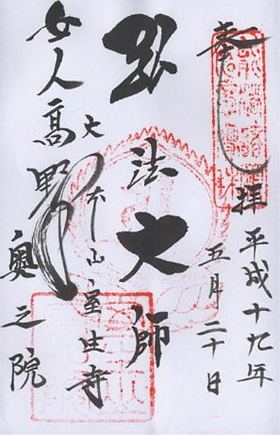 奉拝
平成十九年
五月二十日
弘法大師
大本山室生寺
女人高野
奥之院